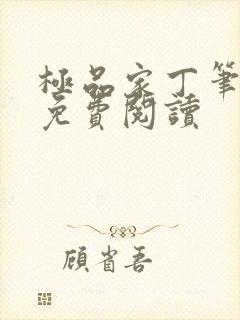 極品家丁筆
免費閱讀
顧省吾